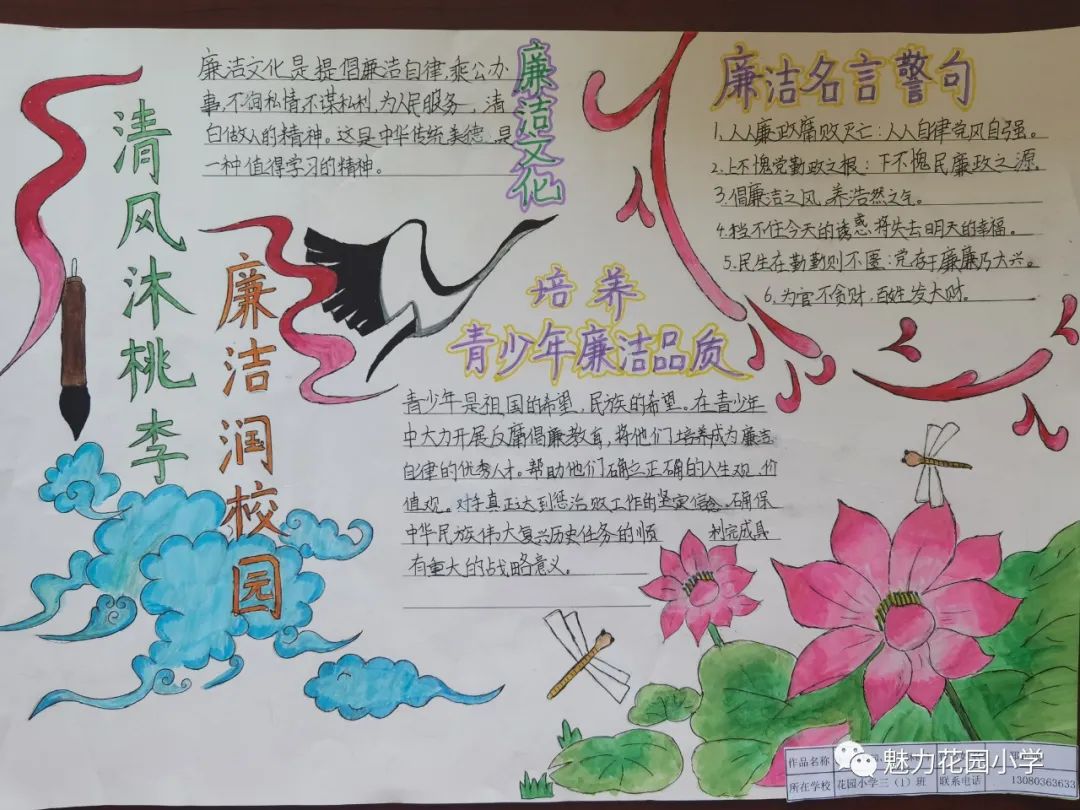 清风沐桃李
廉洁润校园
廉洁文化
廉洁文化是提倡廉洁自律,秉公办
事,不徇私情不谋私利,为人民服务,清
白做人的精神。这是中华传统美德,是
一种值得学习的精神。
廉洁名言警句
1.人人廉政腐败灭亡:人人自律党风自强。
2.上不愧党勤政之根:下不愧民廉政之源,
3.倡廉洁之风,养浩然之气。
4.挡不住今天的诱惑,将失去明天的幸福。
5.民生在勤勤则不匮:党存于廉廉乃大兴。
6.为官不贪财,百姓发大财。
培养
青少年廉洁品质
青少年是祖国的希望,民族的希望。在青少年
中大力开展反腐倡廉教育,将他们培养成为廉洁
自律的优秀人才。帮助他们确立正确的人生观,价
值观。对于真正达到惩治败工作的坚定信念。确保
中华民族伟大复兴历史任务的顺 利完成具
有重大的战略意义。
魅力花园小学
作品名称
所在学校 花园小学三(1)班 联系电话 13080363633